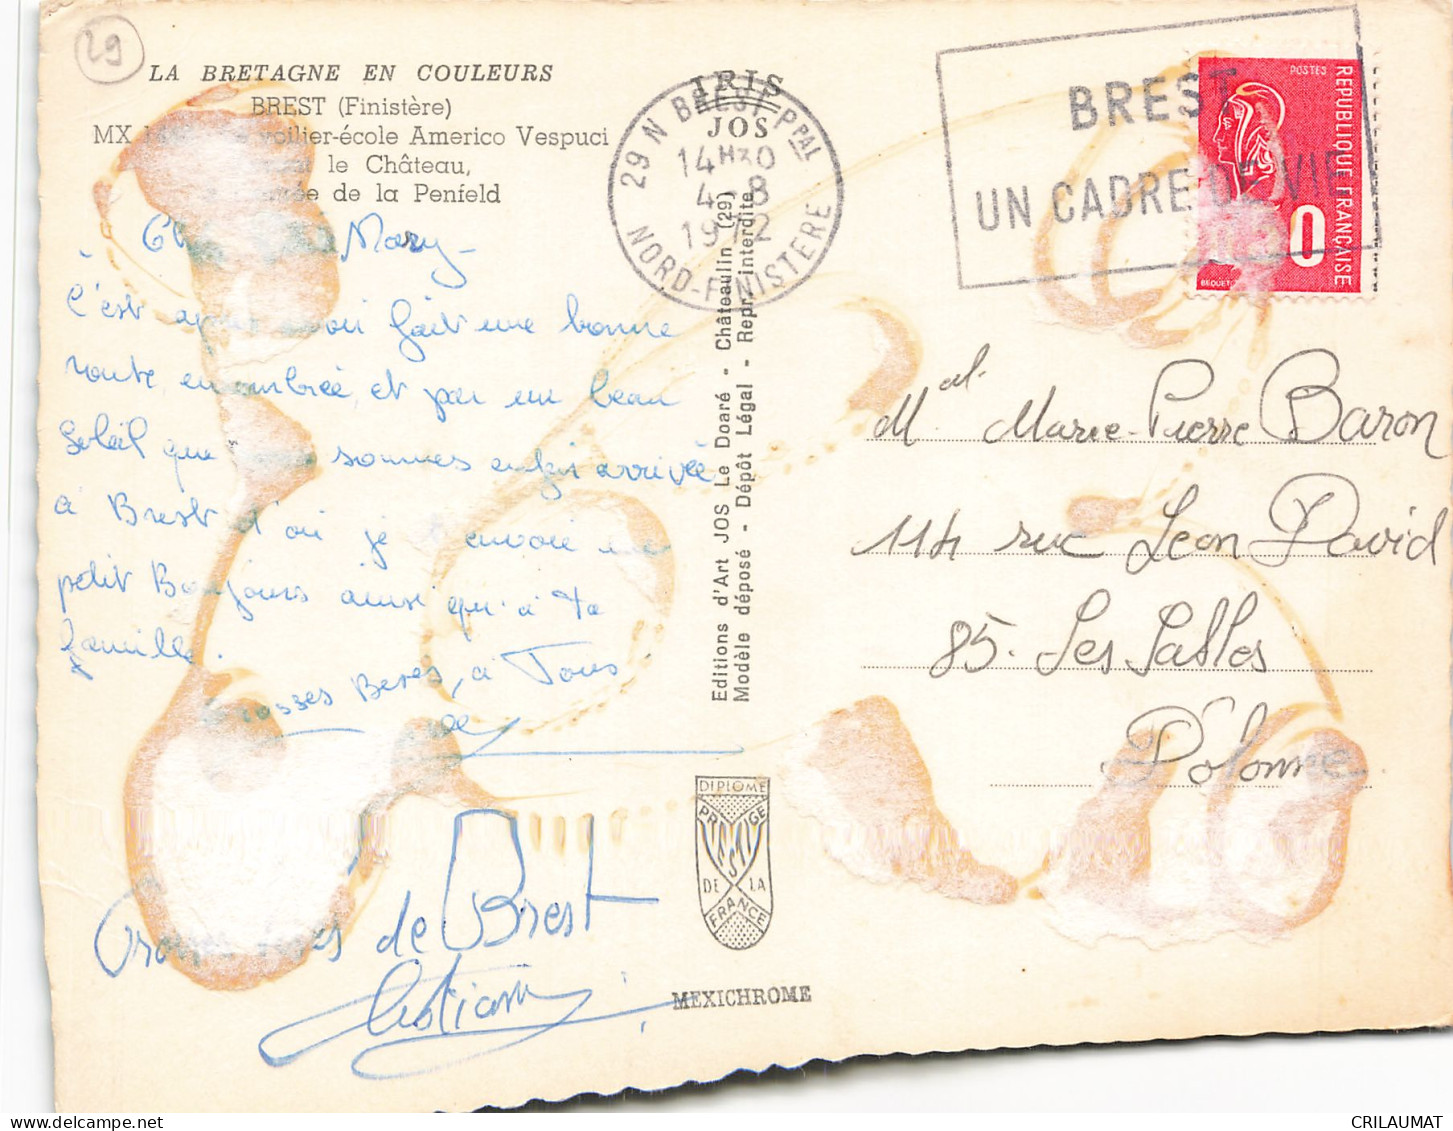 29
LA BRETAGNE EN COULEURS
BREST (Finistère)
MX voilier-école Americo Vespuci
le Château,
de la Penfeld
Mary -
C'est après avoir fait une bonne
route, ensombreé, et par un beau
Soleil que sommes enfin arrivée
à Brest d'où je t'envoie un
petit Bonjours ainsi qu'à Ta
famille.
Grosses Beses, à Tous
Grosses de Brest
Christian
IRIS
JOS
29 N BREST-PPAL
14H30
4-8
1972
NORD-FINISTERE
Editions d'Art JOS Le Doaré - Châteaulin (29)
Modèle déposé - Dépôt Légal - Repr. interdite
DIPLOME
PRESTIGE
DE LA
FRANCE
MEXICHROME
BREST
UN CADRE DE VIE
POSTES
REPUBLIQUE FRANÇAISE
0
BEQUET
Mal. Marie-Pierre Baron
114 rue Leon David
85. Les Sables
D'olonne
CRILAUMAT